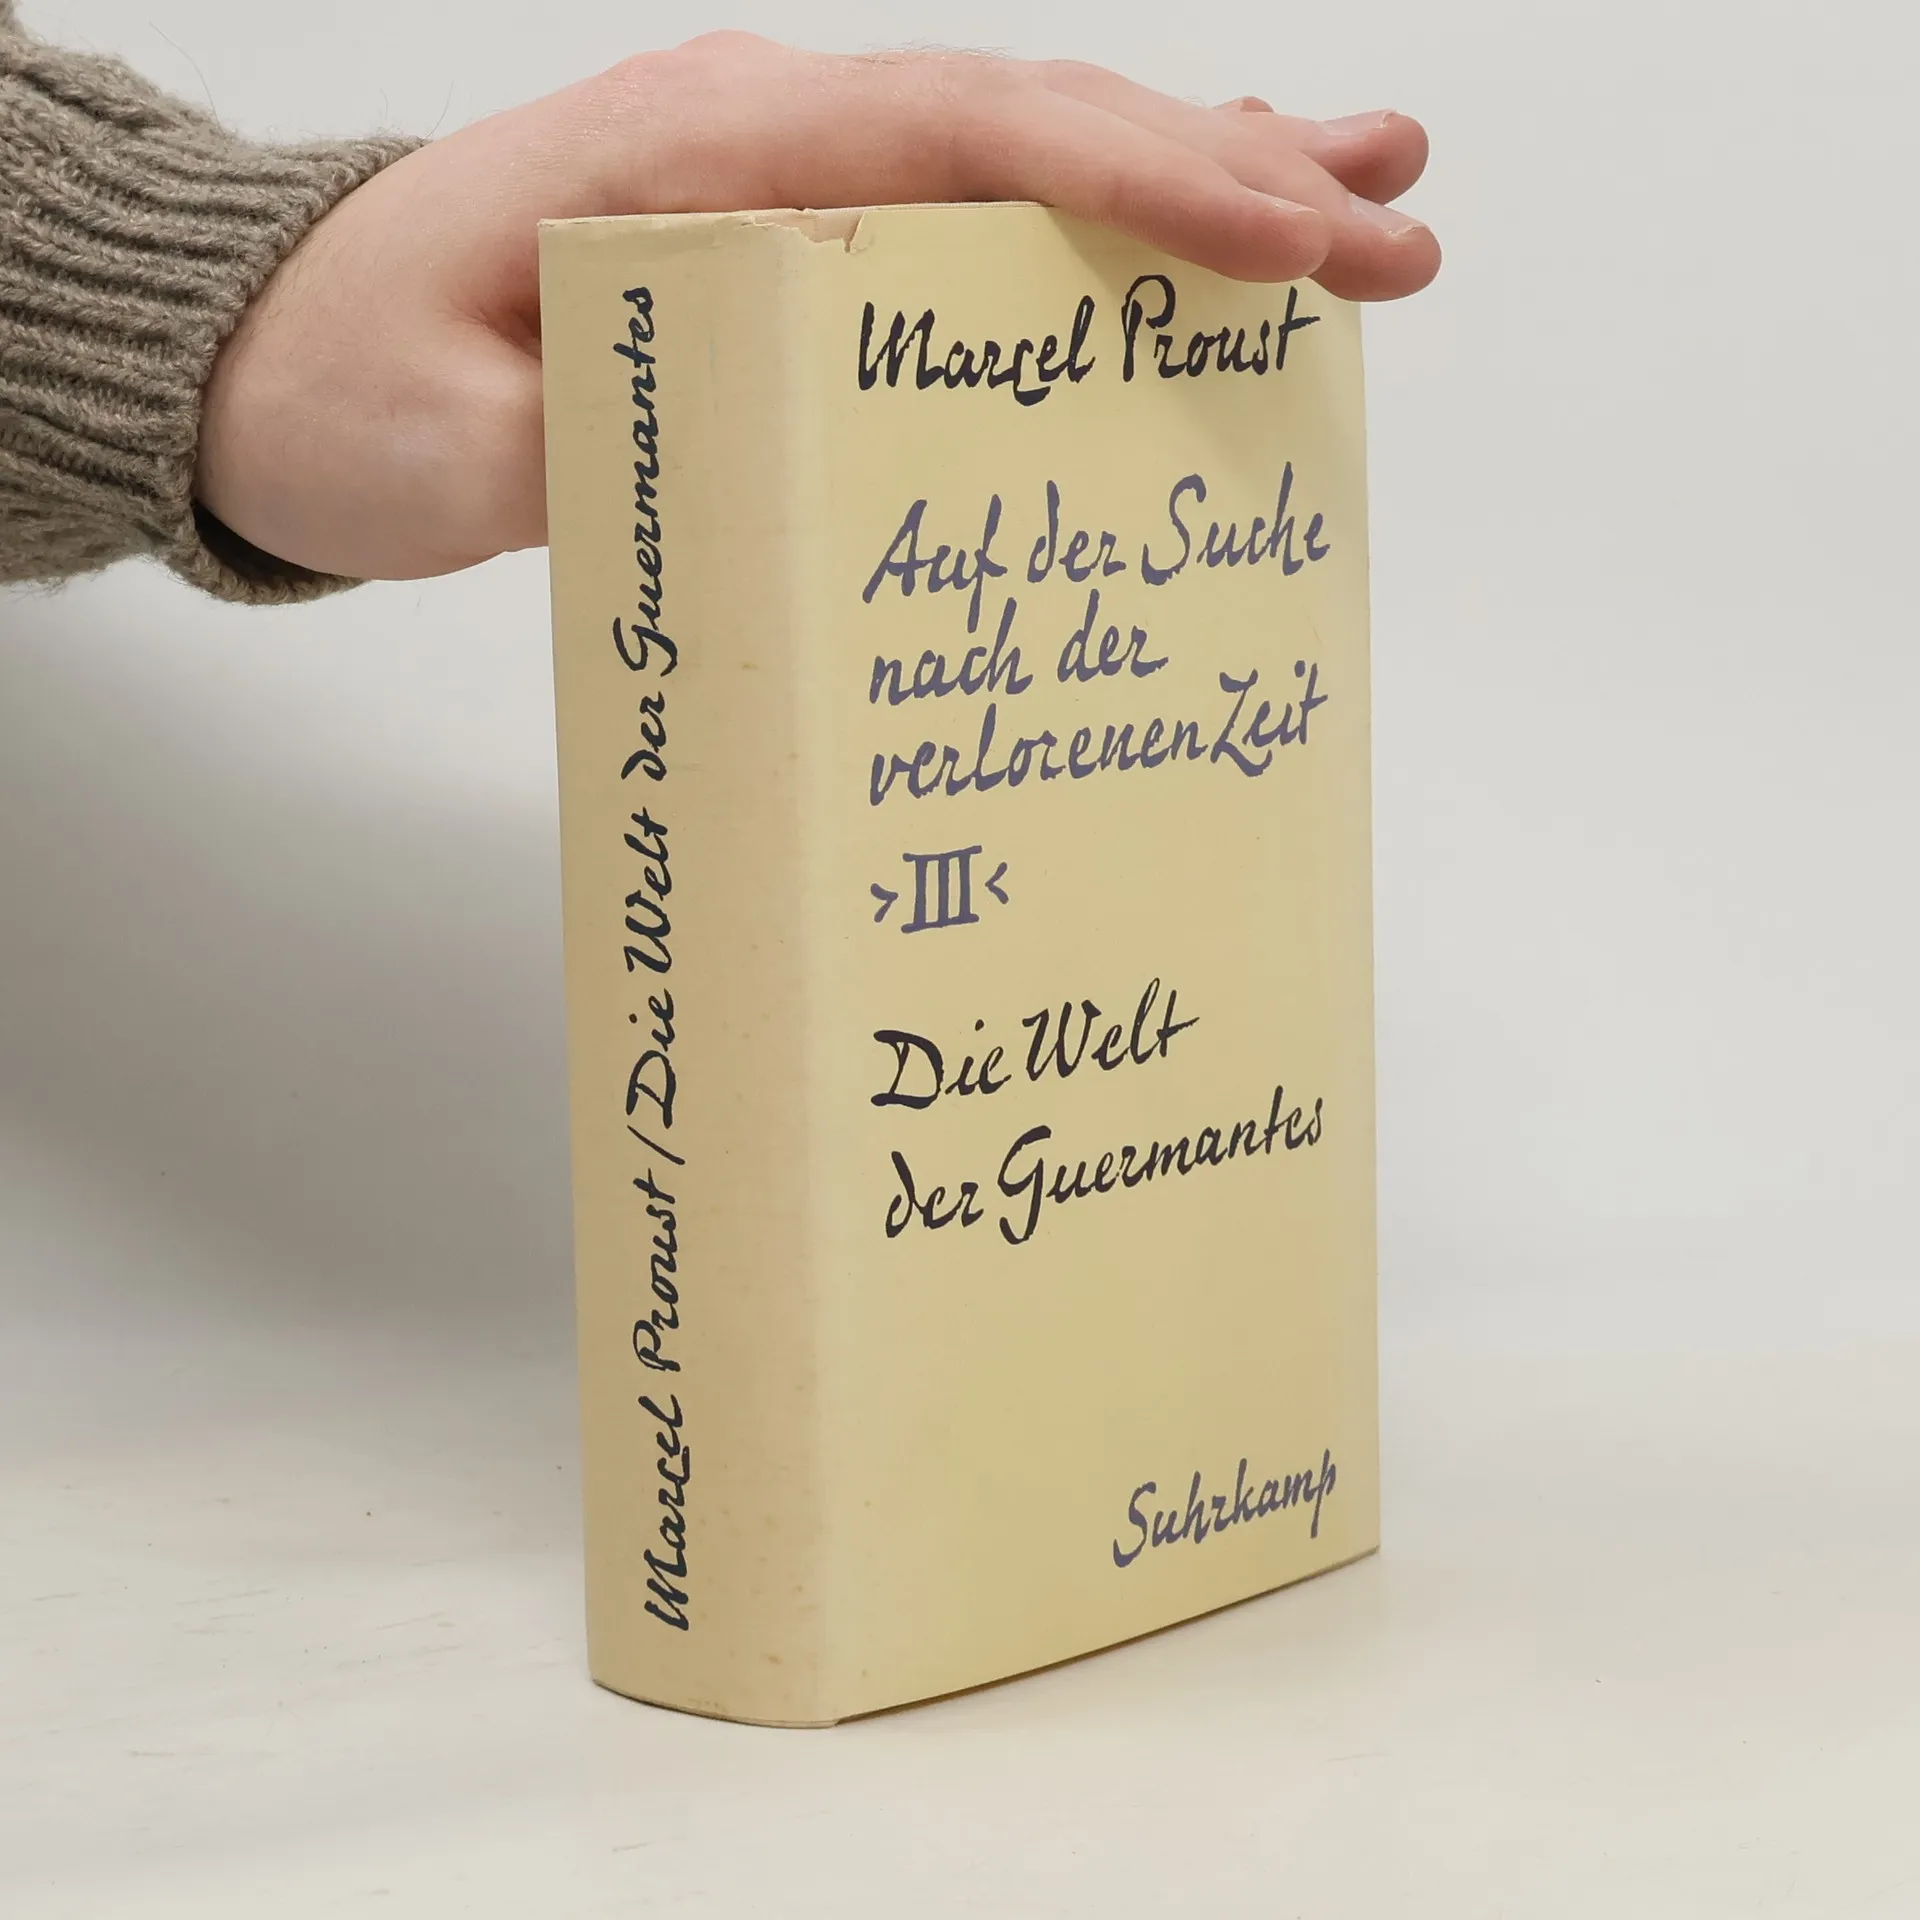 Marcel Proust / Die Welt der Guermantes
Marcel Proust
Auf der Suche
nach der
verlorenen Zeit
>III<
Die Welt
der Guermantes
Suhrkamp